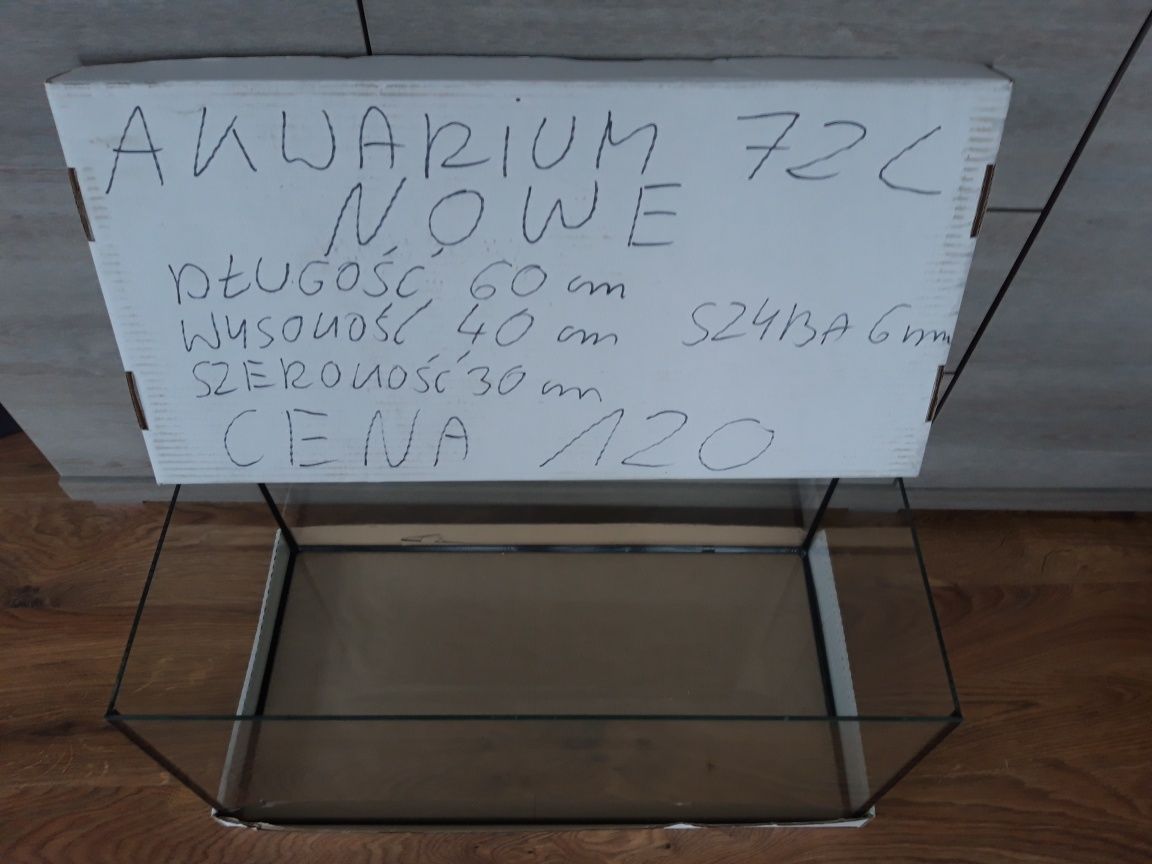 AKWARIUM 72L
NOWE
DŁUGOŚĆ 60 cm
WYSOKOŚĆ 40 cm SZYBA 6mm
SZEROKOŚĆ 30 cm
CENA 120